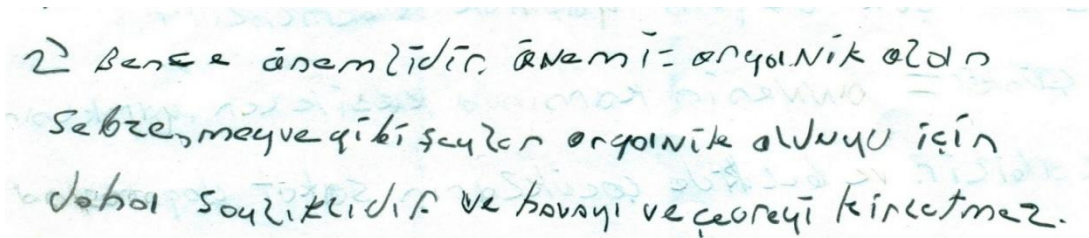 2) Bence önemlidir. Önemi= organik olan
sebze, meyve gibi şeyler organik olduğu için
daha sağlıklıdır ve havayı ve çevreyi kirletmez.